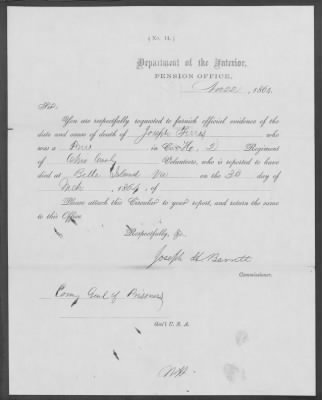 ( No. 11. )
Department of the Interior,
PENSION OFFICE,
Nov 22, 1864.
Sir:
You are respectfully requested to furnish official evidence of the
date and cause of death of Joseph who
was a Priv in Co. 2 Regiment
of Ohio Cavly Volunteers, who is reported to have
died at Belle Island Va on the 30 day of
Mch, 1864, of
Please attach this Circular to your report, and return the same
to this Office
Respectfully, &c.
Joseph H Barrett
Commissioner.
Comy Genl of Prisoners
Gen'l U. S. A.